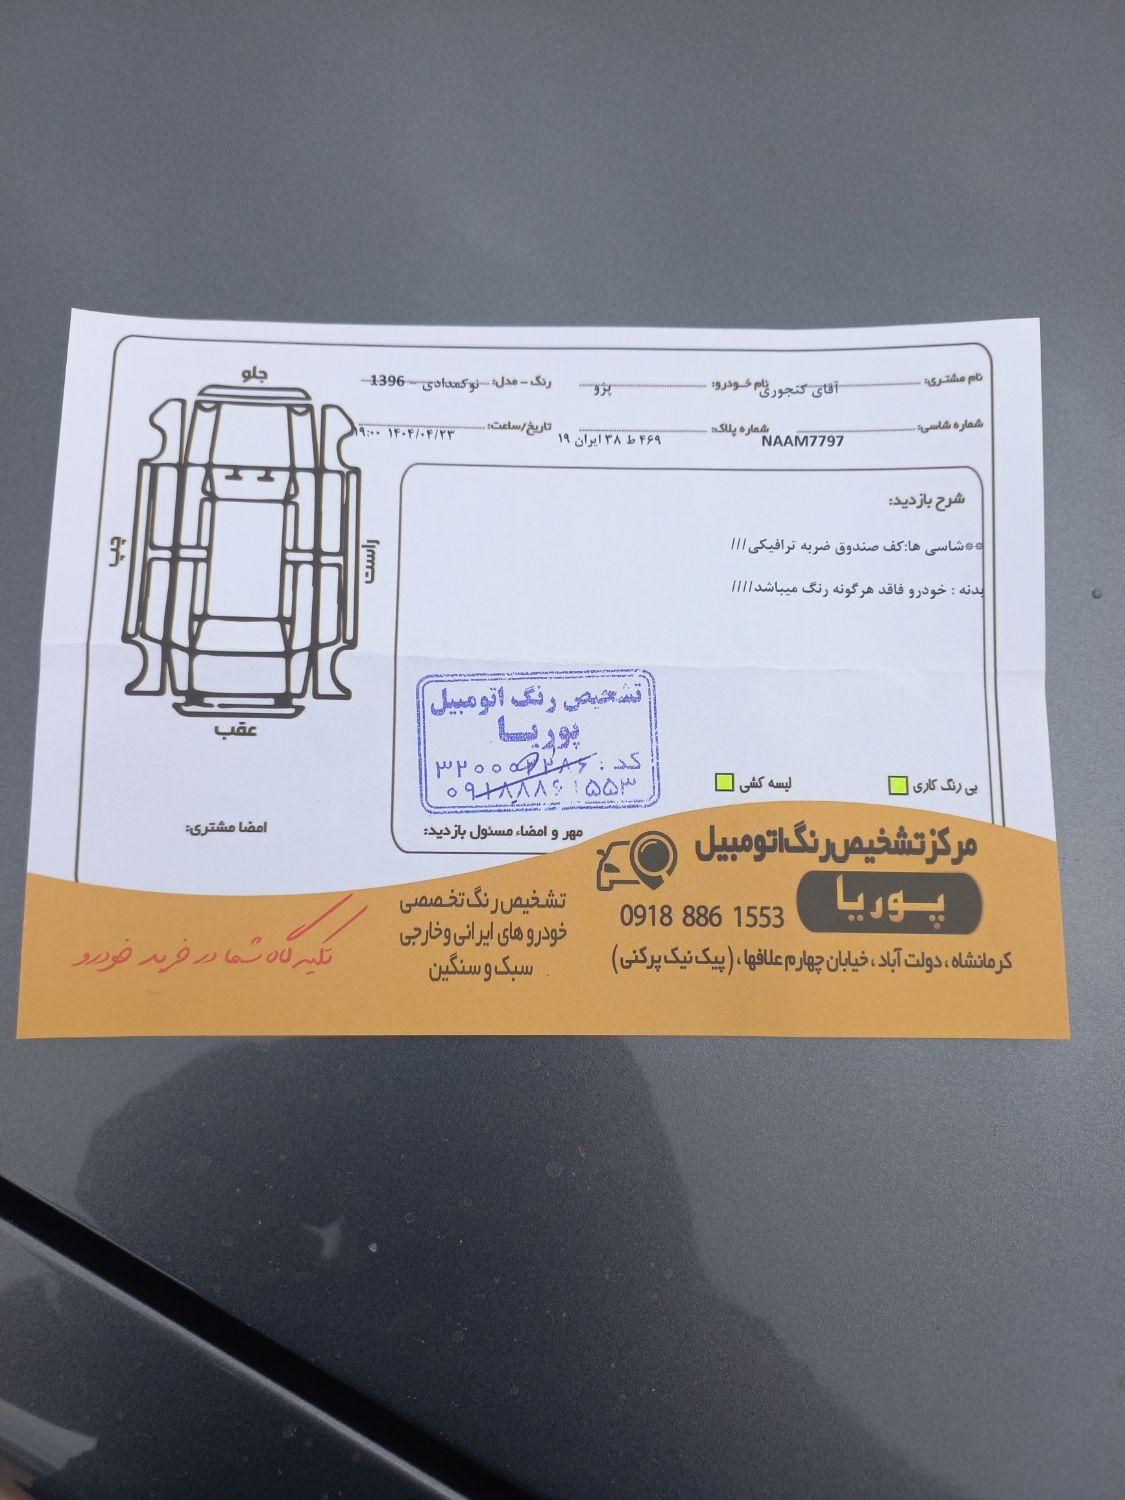 نام مشتری: آقای کنجوری نام خودرو: پژو رنگ - مدل: نوکمدادی - 1396
شماره شاسی: NAAM7797 شماره پلاک: ۴۶۹ ط ۳۸ ایران ۱۹ تاریخ/ساعت: ۱۴۰۴/۰۴/۲۳ ۱۹:۰۰
جلو
چپ
راست
عقب
شرح بازدید:
**شاسی ها:کف صندوق ضربه ترافیکی///
بدنه : خودرو فاقد هرگونه رنگ میباشد////
تشخیص رنگ اتومبیل
پوریا
کد :
۰۹۱۸۸۸۶۱۵۵۳
بی رنگ کاری
لیسه کشی
مهر و امضاء مسئول بازدید:
امضا مشتری:
مرکز تشخیص رنگ اتومبیل
پوریا
0918 886 1553
کرمانشاه ، دولت آباد ، خیابان چهارم علافها ، (پیک نیک پرکنی)
تشخیص رنگ تخصصی
خودرو های ایرانی و خارجی
سبک و سنگین
تکیه گاه شما در خرید خودرو